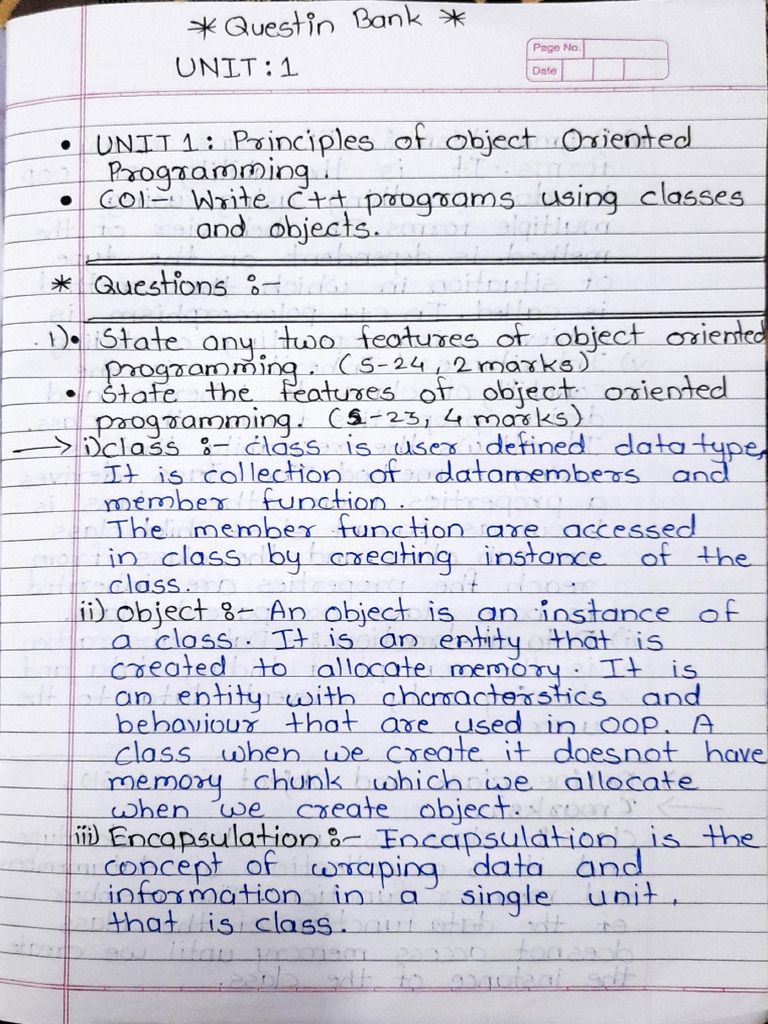 * Questin Bank *
UNIT:1
Page No.
Date
• UNIT 1: Principles of object Oriented
Programming.
• CO1- Write C++ programs using classes
and objects.
* Questions :-
1)• State any two features of object oriented
programming. (S-24, 2 marks)
• State the features of object oriented
programming. (S-23, 4 marks)
→ i) class :- class is user defined data type,
It is collection of datamembers and
member function.
The member function are accessed
in class by creating instance of the
class.
ii) object :- An object is an instance of
a class. It is an entity that is
created to allocate memory. It is
an entity with charactoirstics and
behaviour that are used in OOP. A
class when we create it doesnot have
memory chunk which we allocate
when we create object.
iii) Encapsulation :- Encapsulation is the
concept of wraping data and
information in a single unit,
that is class.